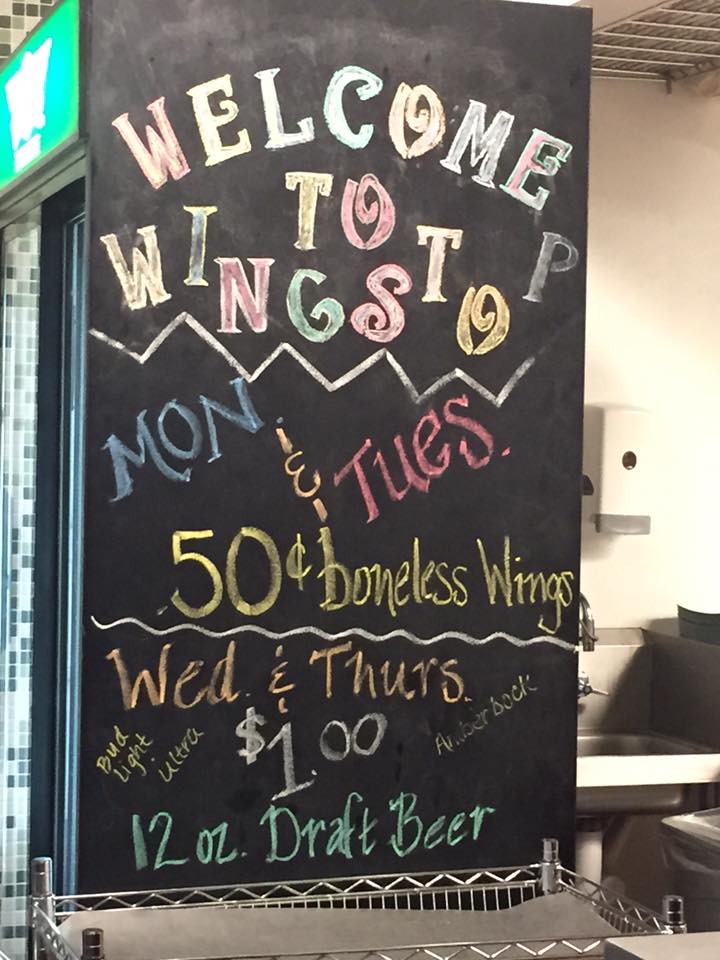 WELCOME
TO
WINGSTOP
MON. & TUES.
50¢ boneless Wings
Wed. & Thurs.
Bud Light
Ultra
$1.00
Amberbock
12 oz. Draft Beer